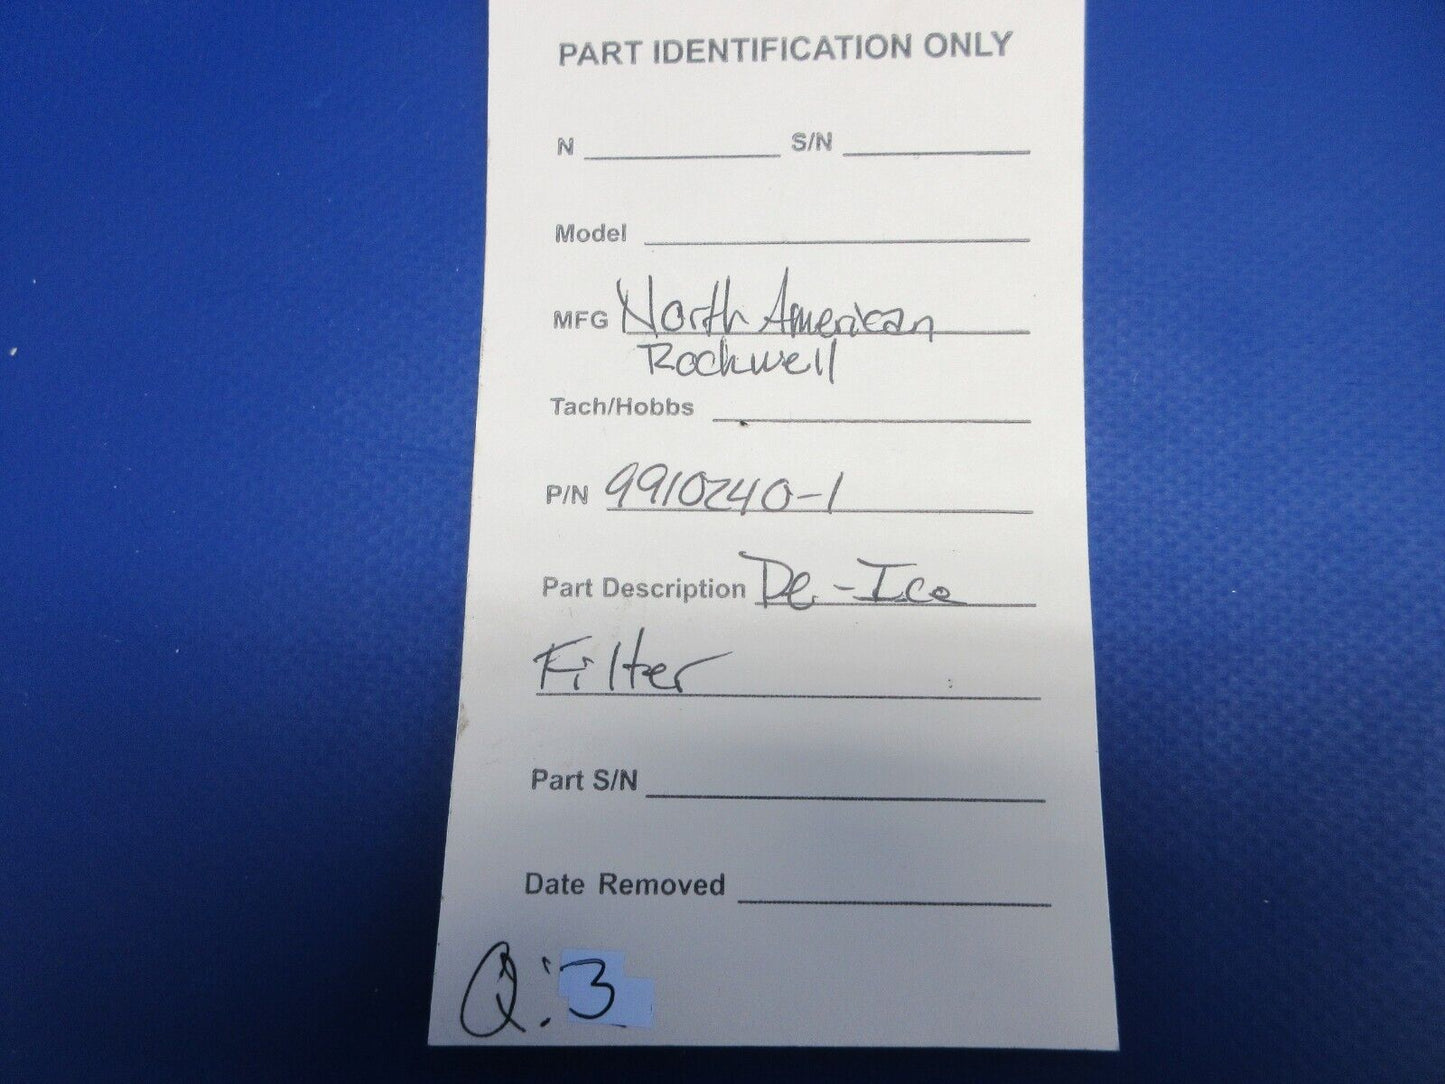 PART IDENTIFICATION ONLY
N S/N
Model
MFG North American
Rockwell
Tach/Hobbs
P/N 9910240-1
Part Description De-Ice
Filter
Part S/N
Date Removed
Q: 3